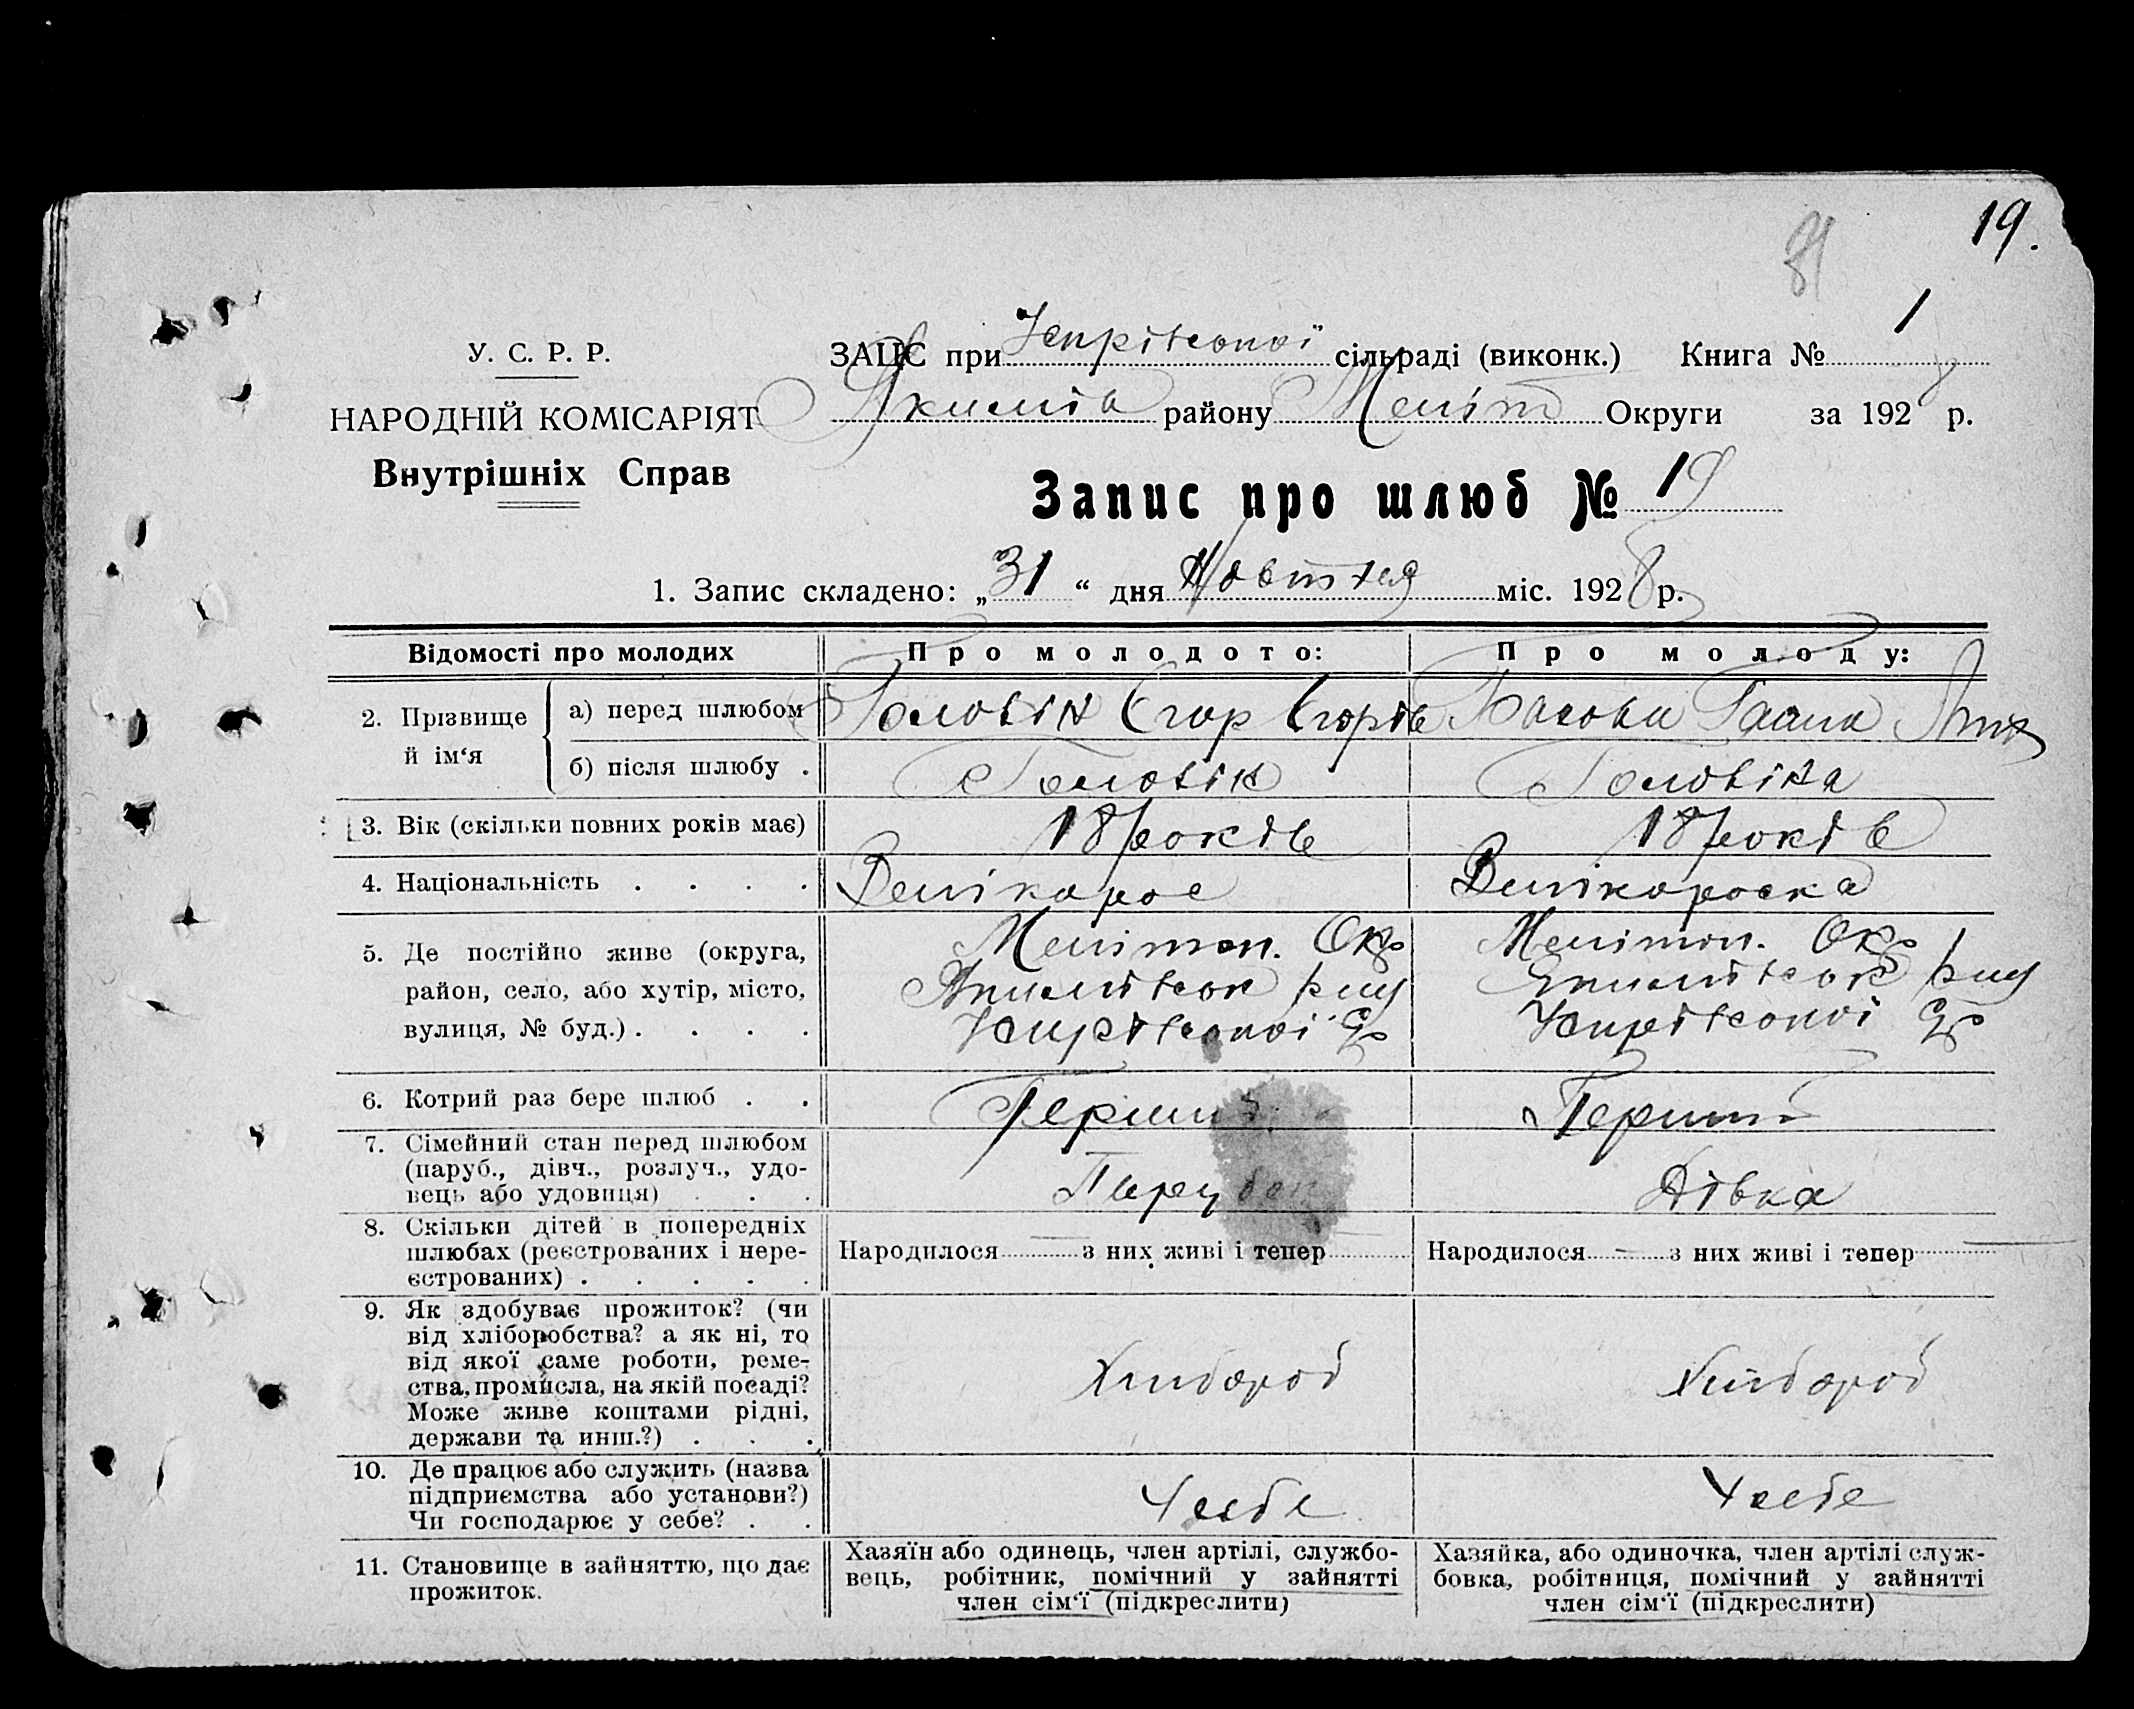 19.
1
У. С. Р. Р.
ЗАЦС при сільраді (виконк.) Книга №
НАРОДНІЙ КОМІСАРІЯТ
району Меліт Округи за 1928 р.
Внутрішніх Справ
Запис про шлюб № 19
1. Запис складено: „31“ дня Жовтня міс. 1928 р.
Відомості про молодих
Про молодого:
Про молоду:
2. Прізвище й ім‘я
а) перед шлюбом
Головін Єгор Єгорів
б) після шлюбу .
Головін
Головіна
3. Вік (скільки повних років має)
18 років
18 років
4. Національність . . . .
Велікорос
Велікороска
5. Де постійно живе (округа,
район, село, або хутір, місто,
вулиця, № буд.) . . . .
Меліпол. Окр
Меліпол. Окр
6. Котрий раз бере шлюб . .
Перший
Перший
7. Сімейний стан перед шлюбом
(паруб., дівч., розлуч., удо-
вець або удовиця) . . .
Парубок
Дівка
8. Скільки дітей в попередніх
шлюбах (реєстрованих і нере-
єстрованих) . . . . .
Народилося — з них живі і тепер —
Народилося — з них живі і тепер —
9. Як здобуває прожиток? (чи
від хліборобства? а як ні, то
від якої саме роботи, реме-
ства, промисла, на якій посаді?
Може живе коштами рідні,
держави та инш.?) . . .
Хлібороб
Хлібороб
10. Де працює або служить (назва
підприємства або установи?)
Чи господарює у себе? . .
У себе
У себе
11. Становище в зайняттю, що дає
прожиток.
Хазяїн або одинець, член артілі, службо-
вець, робітник, помічний у зайнятті
член сім‘ї (підкреслити)
Хазяйка, або одиночка, член артілі служ-
бовка, робітниця, помічний у зайнятті
член сім‘ї (підкреслити)